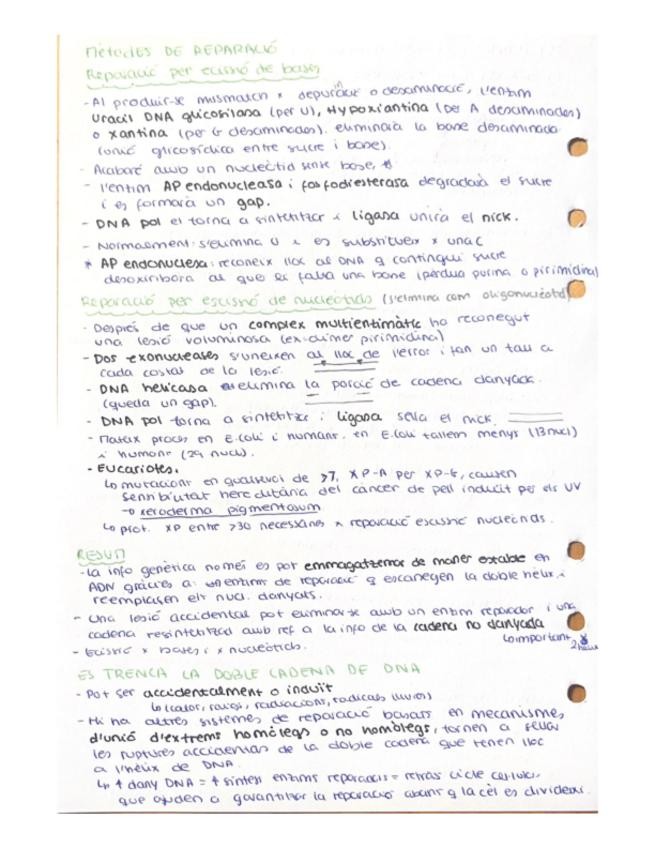 MÈTODES DE REPARACIÓ
Reparació per escisió de bases
- Al produir-se mismatch x depurinac o desaminació, l'enzim
Uracil DNA glicosilasa (per U), Hypoxiantina (per A desaminades)
o xantina (per G desaminades). eliminarà la base desaminada
(unió glicosídica entre sucre i base).
- Acabaré amb un nucleòtid sense base,
- l'enzim AP endonucleasa i fosfodiesterasa degradarà el sucre
i es formarà un gap.
- DNA pol el torna a sintetitzar i ligasa unirà el nick.
- Normalment: s'elimina U i es substitueix x una C
* AP endonuclesa: reconeix lloc al DNA q contingui sucre
desoxiribosa al que li falta una base (pèrdua purina o pirimidina)
Reparació per escisió de nucleòtids (s'elimina com oligonucleòtid)
- Després de que un complex multienzimàtic ha reconegut
una lesió voluminosa (ex: dímer pirimidina)
- Dos exonucleases s'uneixen al lloc de l'error i fan un tall a
cada costat de la lesió.
- DNA helicasa elimina la porció de cadena danyada.
(queda un gap).
- DNA pol torna a sintetitzar i ligasa sella el nick.
- Mateix procés en E.coli i humans. en E.coli tallem menys (13 nucl)
i humans (29 nucl).
- Eucariotes:
↳ mutacions en qualsevol de >7, XP-A per XP-G, causen
sensibilitat hereditària del càncer de pell induït per els UV
→ xeroderma pigmentosum
↳ prot. XP entre >30 necessàries x reparació escisió nucleòtids.
RESUM
- La info genètica només es pot emmagatzemar de maner estable en
ADN gràcies a: un enzim de reparació q escanegen la doble hèlix i
reemplaçen els nucl. danyats.
- Una lesió accidental pot eliminar-se amb un enzim reparador i una
cadena resintetitzad amb ref a la info de la cadena no danyada
↳ important 2 hèlix
- Escisió x bases i x nucleòtids.
ES TRENCA LA DOBLE CADENA DE DNA
- Pot ser accidentalment o induït
↳ (calor, raigs, radiacions, radicals lliures)
- Hi ha altres sistemes de reparació basats en mecanismes
d'unió d'extrems homòlegs o no homòlegs, tornen a sellar
les ruptures accidentals de la doble cadena que tenen lloc
a l'hèlix de DNA.
↳ ↑ dany DNA = ↑ síntesi enzims reparació = retràs cicle cel·lular
que ajuden a garantitzar la reparació abans q la cèl es divideixi.